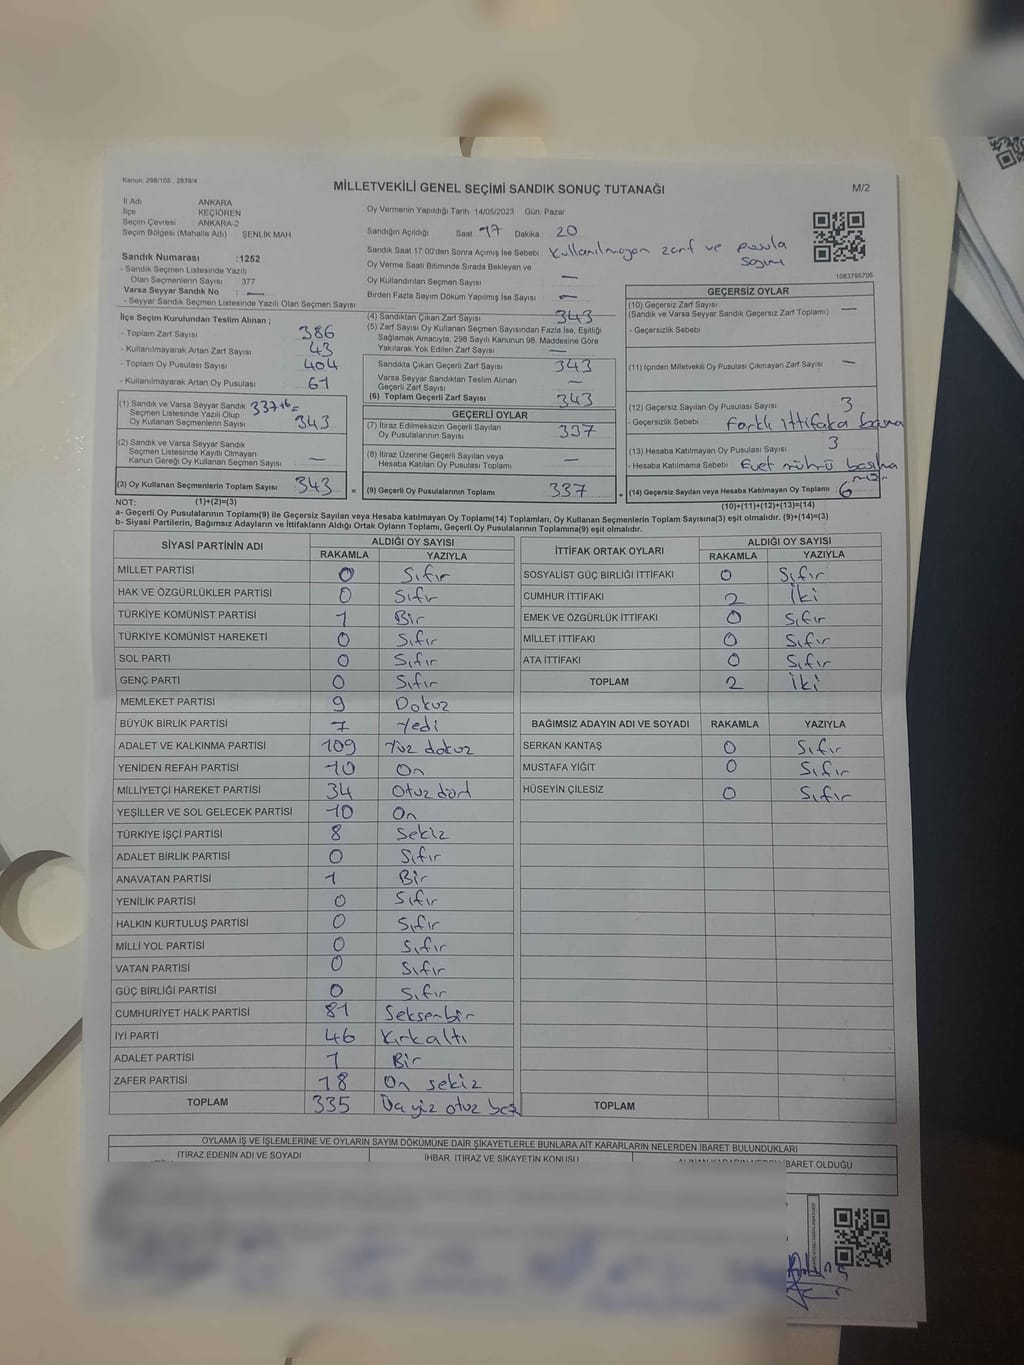 Kanun: 298/105 , 2839/4
MİLLETVEKİLİ GENEL SEÇİMİ SANDIK SONUÇ TUTANAĞI
M/2
İl Adı ANKARA
İlçe KEÇİÖREN
Seçim Çevresi ANKARA-2
Seçim Bölgesi (Mahalle Adı) : ŞENLİK MAH
Sandık Numarası :1252
- Sandık Seçmen Listesinde Yazılı
Olan Seçmenlerin Sayısı 377
Varsa Seyyar Sandık No : —
- Seyyar Sandık Seçmen Listesinde Yazılı Olan Seçmen Sayısı
Oy Vermenin Yapıldığı Tarih :14/05/2023 Gün: Pazar
Sandığın Açıldığı Saat 17 Dakika 20
Sandık Saat 17:00'den Sonra Açılmış İse Sebebi Kullanılmayan zarf ve pusula
sayımı
Oy Verme Saati Bitiminde Sırada Bekleyen ve
Oy Kullandırılan Seçmen Sayısı —
Birden Fazla Sayım Döküm Yapılmış İse Sayısı —
1063795706
İlçe Seçim Kurulundan Teslim Alınan ;
- Toplam Zarf Sayısı 386
- Kullanılmayarak Artan Zarf Sayısı 43
- Toplam Oy Pusulası Sayısı 404
- Kullanılmayarak Artan Oy Pusulası 61
(1) Sandık ve Varsa Seyyar Sandık 337+6=
Seçmen Listesinde Yazılı Olup
Oy Kullanan Seçmenlerin Sayısı 343
(2) Sandık ve Varsa Seyyar Sandık
Seçmen Listesinde Kayıtlı Olmayan
Kanun Gereği Oy Kullanan Seçmen Sayısı —
(3) Oy Kullanan Seçmenlerin Toplam Sayısı 343 =
(4) Sandıktan Çıkan Zarf Sayısı 343
(5) Zarf Sayısı Oy Kullanan Seçmen Sayısından Fazla İse, Eşitliği
Sağlamak Amacıyla; 298 Sayılı Kanunun 98. Maddesine Göre
Yakılarak Yok Edilen Zarf Sayısı —
Sandıkta Çıkan Geçerli Zarf Sayısı 343
Varsa Seyyar Sandıktan Teslim Alınan
Geçerli Zarf Sayısı —
(6) Toplam Geçerli Zarf Sayısı 343
GEÇERLİ OYLAR
(7) İtiraz Edilmeksizin Geçerli Sayılan
Oy Pusulalarının Sayısı 337
(8) İtiraz Üzerine Geçerli Sayılan veya
Hesaba Katılan Oy Pusulası Toplamı —
(9) Geçerli Oy Pusulalarının Toplamı 337 +
GEÇERSİZ OYLAR
(10) Geçersiz Zarf Sayısı
(Sandık ve Varsa Seyyar Sandık Geçersiz Zarf Toplamı) —
- Geçersizlik Sebebi
(11) İçinden Milletvekili Oy Pusulası Çıkmayan Zarf Sayısı —
(12) Geçersiz Sayılan Oy Pusulası Sayısı 3
- Geçersizlik Sebebi Farklı ittifaka basma
(13) Hesaba Katılmayan Oy Pusulası Sayısı 3
- Hesaba Katılmama Sebebi Evet mührü basılma
(14) Geçersiz Sayılan veya Hesaba Katılmayan Oy Toplamı 6
NOT: (1)+(2)=(3)
(10)+(11)+(12)+(13)=(14)
a- Geçerli Oy Pusulalarının Toplamı(9) ile Geçersiz Sayılan veya Hesaba katılmayan Oy Toplamı(14) Toplamları, Oy Kullanan Seçmenlerin Toplam Sayısına(3) eşit olmalıdır. (9)+(14)=(3)
b- Siyasi Partilerin, Bağımsız Adayların ve İttifakların Aldığı Ortak Oyların Toplamı, Geçerli Oy Pusulalarının Toplamına(9) eşit olmalıdır.
SİYASİ PARTİNİN ADI ALDIĞI OY SAYISI
RAKAMLA YAZIYLA
MİLLET PARTİSİ 0 Sıfır
HAK VE ÖZGÜRLÜKLER PARTİSİ 0 Sıfır
TÜRKİYE KOMÜNİST PARTİSİ 1 Bir
TÜRKİYE KOMÜNİST HAREKETİ 0 Sıfır
SOL PARTİ 0 Sıfır
GENÇ PARTİ 0 Sıfır
MEMLEKET PARTİSİ 9 Dokuz
BÜYÜK BİRLİK PARTİSİ 7 Yedi
ADALET VE KALKINMA PARTİSİ 109 Yüz dokuz
YENİDEN REFAH PARTİSİ 10 On
MİLLİYETÇİ HAREKET PARTİSİ 34 Otuz dört
YEŞİLLER VE SOL GELECEK PARTİSİ 10 On
TÜRKİYE İŞÇİ PARTİSİ 8 Sekiz
ADALET BİRLİK PARTİSİ 0 Sıfır
ANAVATAN PARTİSİ 1 Bir
YENİLİK PARTİSİ 0 Sıfır
HALKIN KURTULUŞ PARTİSİ 0 Sıfır
MİLLİ YOL PARTİSİ 0 Sıfır
VATAN PARTİSİ 0 Sıfır
GÜÇ BİRLİĞİ PARTİSİ 0 Sıfır
CUMHURİYET HALK PARTİSİ 81 Seksenbir
İYİ PARTİ 46 Kırkaltı
ADALET PARTİSİ 1 Bir
ZAFER PARTİSİ 18 On sekiz
TOPLAM 335 Üç yüz otuz beş
İTTİFAK ORTAK OYLARI ALDIĞI OY SAYISI
RAKAMLA YAZIYLA
SOSYALİST GÜÇ BİRLİĞİ İTTİFAKI 0 Sıfır
CUMHUR İTTİFAKI 2 İki
EMEK VE ÖZGÜRLÜK İTTİFAKI 0 Sıfır
MİLLET İTTİFAKI 0 Sıfır
ATA İTTİFAKI 0 Sıfır
TOPLAM 2 İki
BAĞIMSIZ ADAYIN ADI VE SOYADI RAKAMLA YAZIYLA
SERKAN KANTAŞ 0 Sıfır
MUSTAFA YİĞİT 0 Sıfır
HÜSEYİN ÇİLESİZ 0 Sıfır
TOPLAM
OYLAMA İŞ VE İŞLEMLERİNE VE OYLARIN SAYIM DÖKÜMÜNE DAİR ŞİKAYETLERLE BUNLARA AİT KARARLARIN NELERDEN İBARET BULUNDUKLARI
İTİRAZ EDENİN ADI VE SOYADI İHBAR, İTİRAZ VE ŞİKAYETİN KONUSU ALINAN KARARIN NEDEN İBARET OLDUĞU